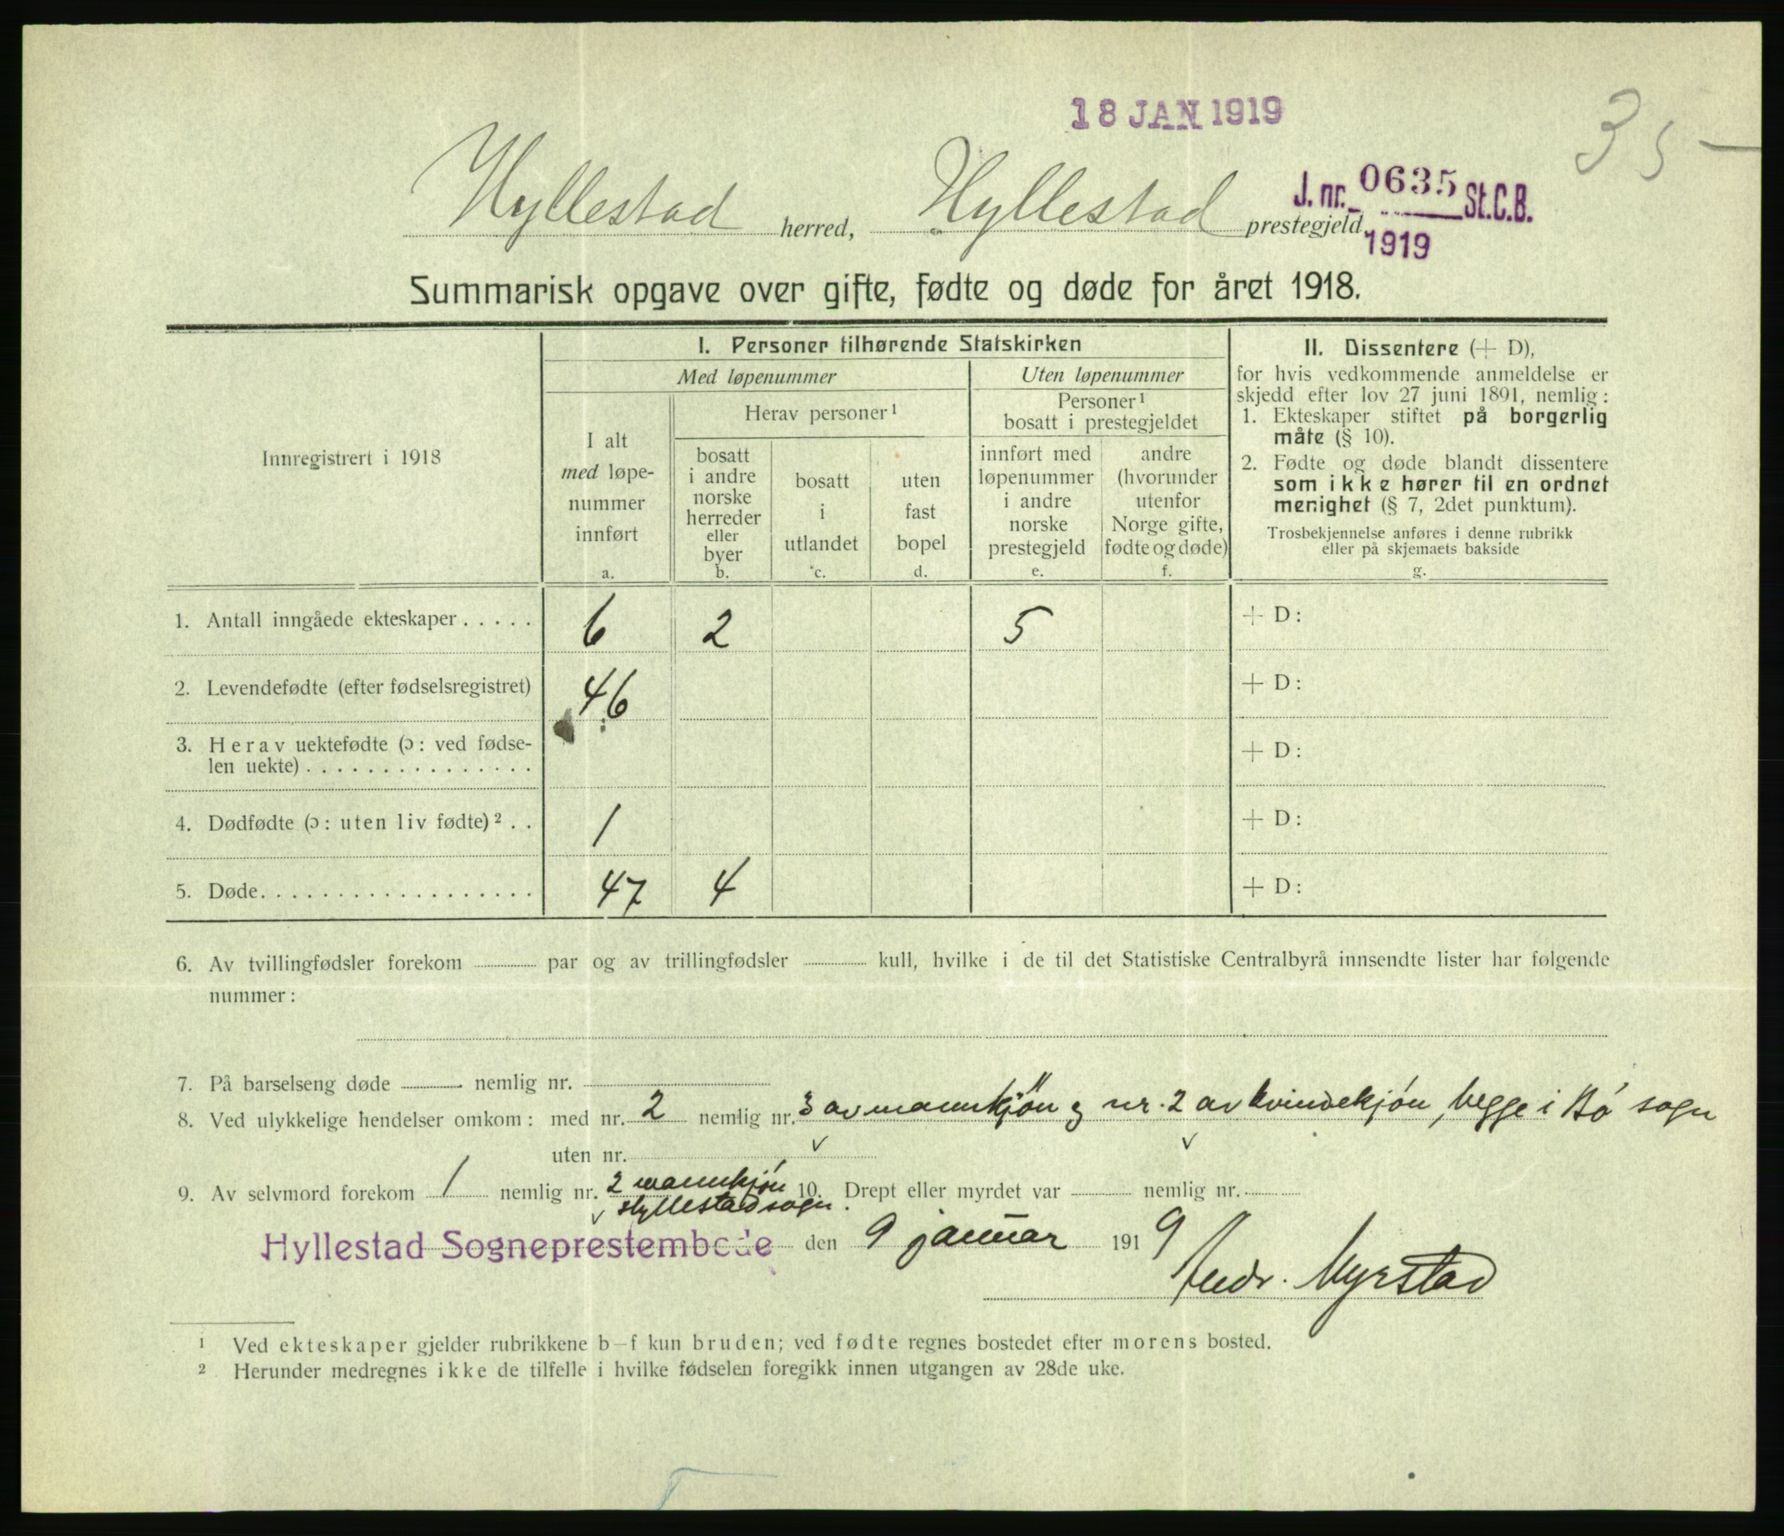 18 JAN 1919
35 –
Hyllestad herred, Hyllestad prestegjeld.
J. nr. 0635 St.C.B.
1919
Summarisk opgave over gifte, fødte og døde for året 1918.
Innregistrert i 1918
I. Personer tilhørende Statskirken
Med løpenummer
Uten løpenummer
I alt
med løpe-
nummer
innført
a.
Herav personer ¹
bosatt
i andre
norske
herreder
eller
byer
b.
bosatt
i
utlandet
c.
uten
fast
bopel
d.
Personer ¹
bosatt i prestegjeldet
innført med
løpenummer
i andre
norske
prestegjeld
e.
andre
(hvorunder
utenfor
Norge gifte,
fødte og døde)
f.
II. Dissentere (+ D),
for hvis vedkommende anmeldelse er
skjedd efter lov 27 juni 1891, nemlig:
1. Ekteskaper stiftet på borgerlig
måte (§ 10).
2. Fødte og døde blandt dissentere
som ikke hører til en ordnet
menighet (§ 7, 2det punktum).
Trosbekjennelse anføres i denne rubrikk
eller på skjemaets bakside
g.
1. Antall inngåede ekteskaper . . . . . 6 2 5 + D:
2. Levendefødte (efter fødselsregistret) 46 + D:
3. Herav uektefødte (ɔ: ved fødse-
len uekte) . . . . . . . . . . . . . . . + D:
4. Dødfødte (ɔ: uten liv fødte) ² . . 1 + D:
5. Døde. . . . . . . . . . . . . . . . . . 47 4 + D:
6. Av tvillingfødsler forekom par og av trillingfødsler kull, hvilke i de til det Statistiske Centralbyrå innsendte lister har følgende
nummer:
7. På barselseng døde nemlig nr.
8. Ved ulykkelige hendelser omkom: med nr. 2 nemlig nr. 3 av mannkjön og nr. 2 av kvindekjón, begge i Bó sogn
uten nr.
9. Av selvmord forekom 1 nemlig nr. 2 mannkjón 10. Drept eller myrdet var nemlig nr.
Hyllestad sogn.
Hyllestad Sogneprestembede den 9 januar 1919
Andr. Myrstad
¹ Ved ekteskaper gjelder rubrikkene b–f kun bruden; ved fødte regnes bostedet efter morens bosted.
² Herunder medregnes ikke de tilfelle i hvilke fødselen foregikk innen utgangen av 28de uke.